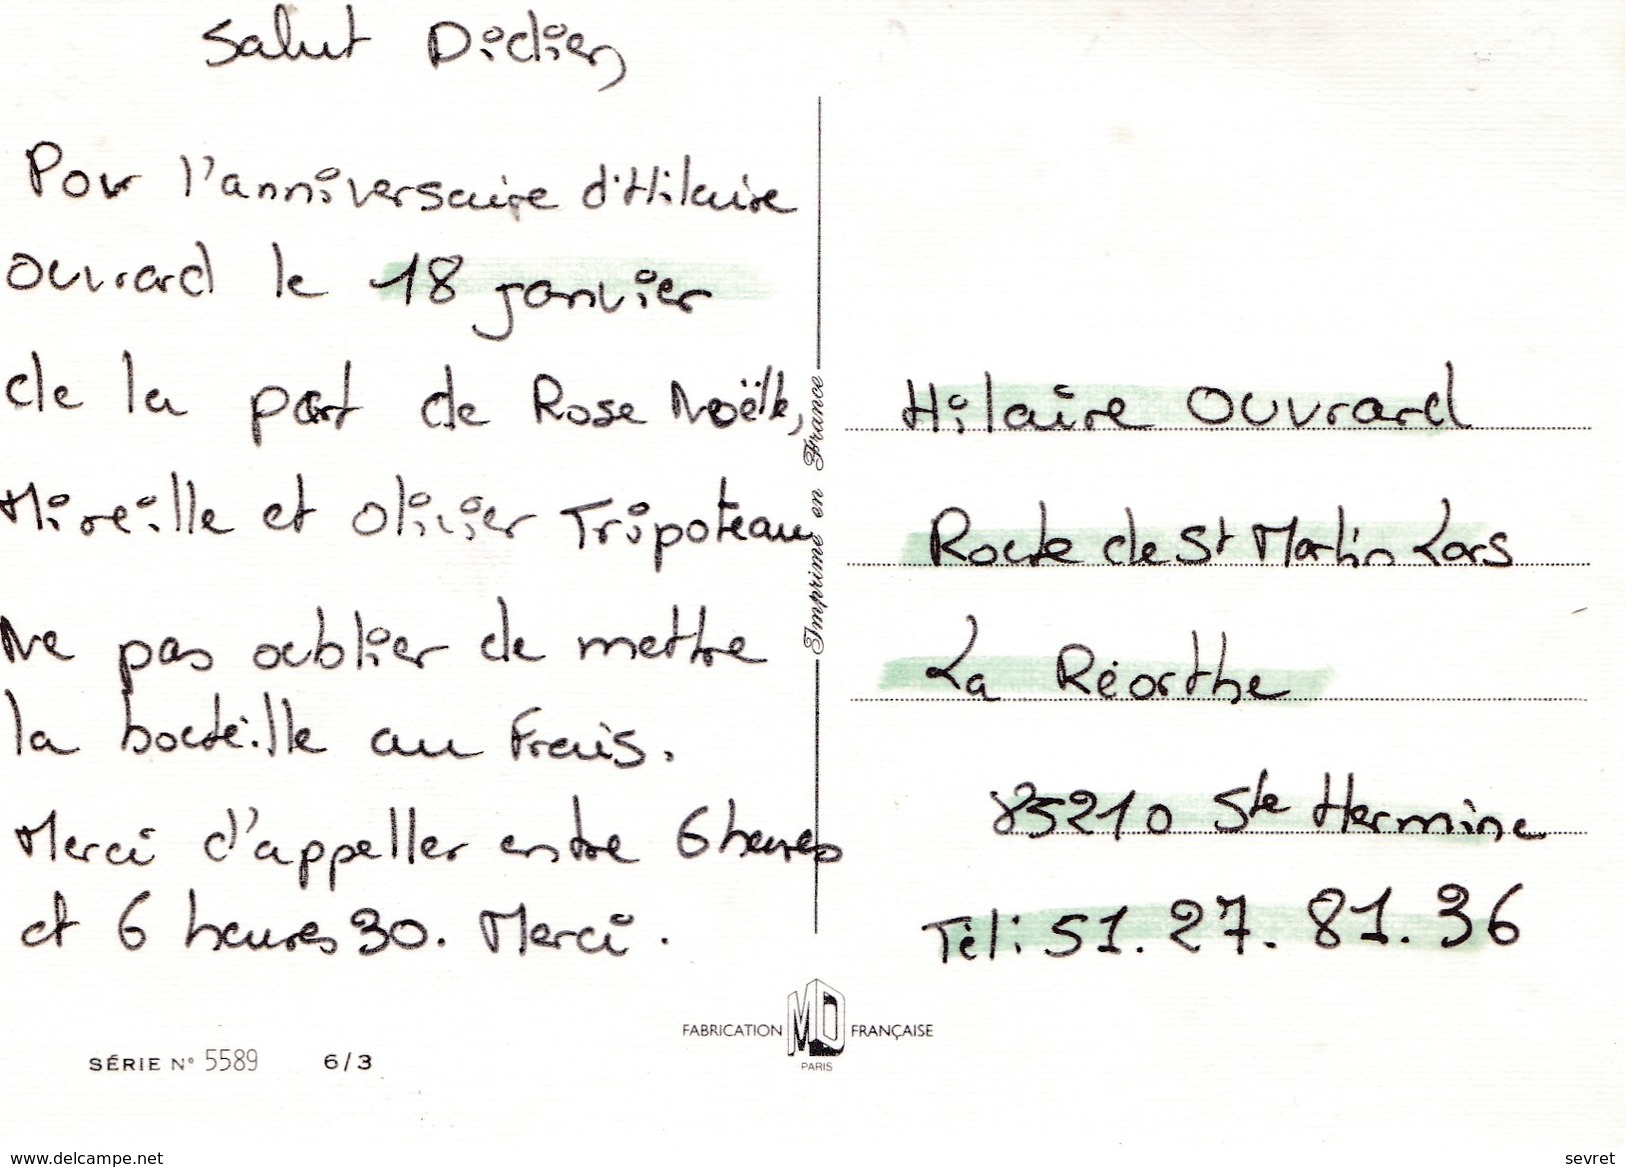 Salut Didier
Pour l'anniversaire d'Hilaire
Ouvrard le 18 janvier
de la part de Rose Noëlle,
Mireille et Olivier Tripoteau
Ne pas oublier de mettre
la bouteille au Frais.
Merci d'appeller entre 6 heures
et 6 heures 30. Merci.
Imprimé en France
Hilaire Ouvrard
Route de St Martin Lars
La Réorthe
85210 Ste Hermine
Tél: 51.27.81.36
FABRICATION MD FRANÇAISE
PARIS
SÉRIE N° 5589 6/3
www.delcampe.net
sevret